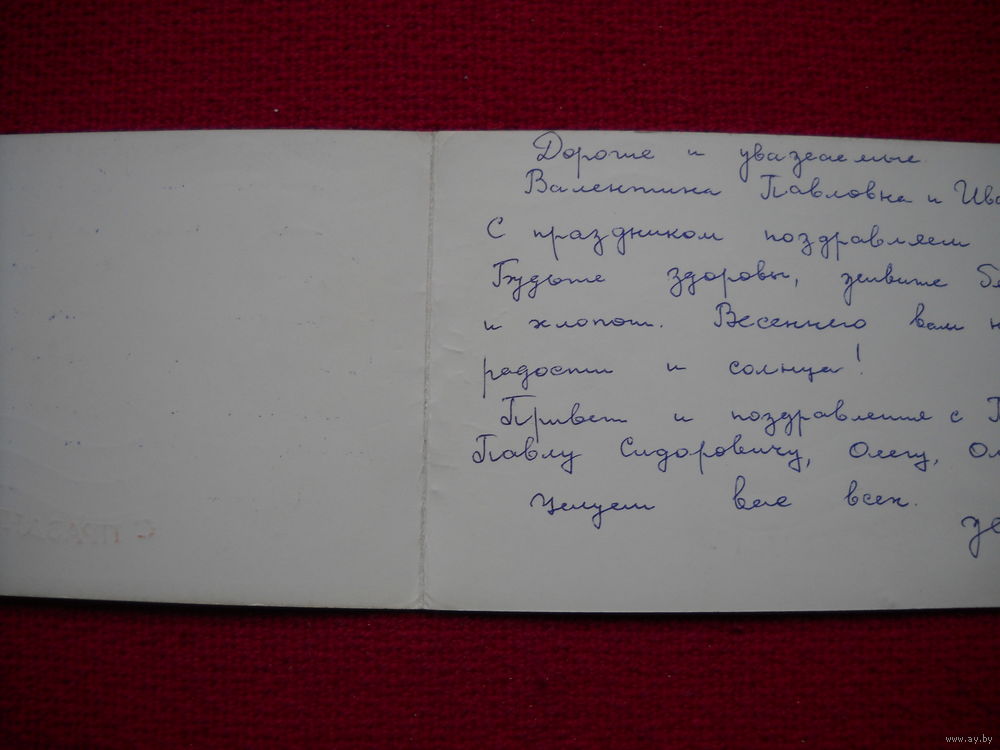 Дорогие и уважаемые
Валентина Павловна и Ива
С праздником поздравляем
Будьте здоровы, живите бе
и хлопот. Весеннего вам н
радости и солнца!
Привет и поздравления с П
Павлу Сидоровичу, Олегу, Ол
Целуем вас всех.
www.ay.by